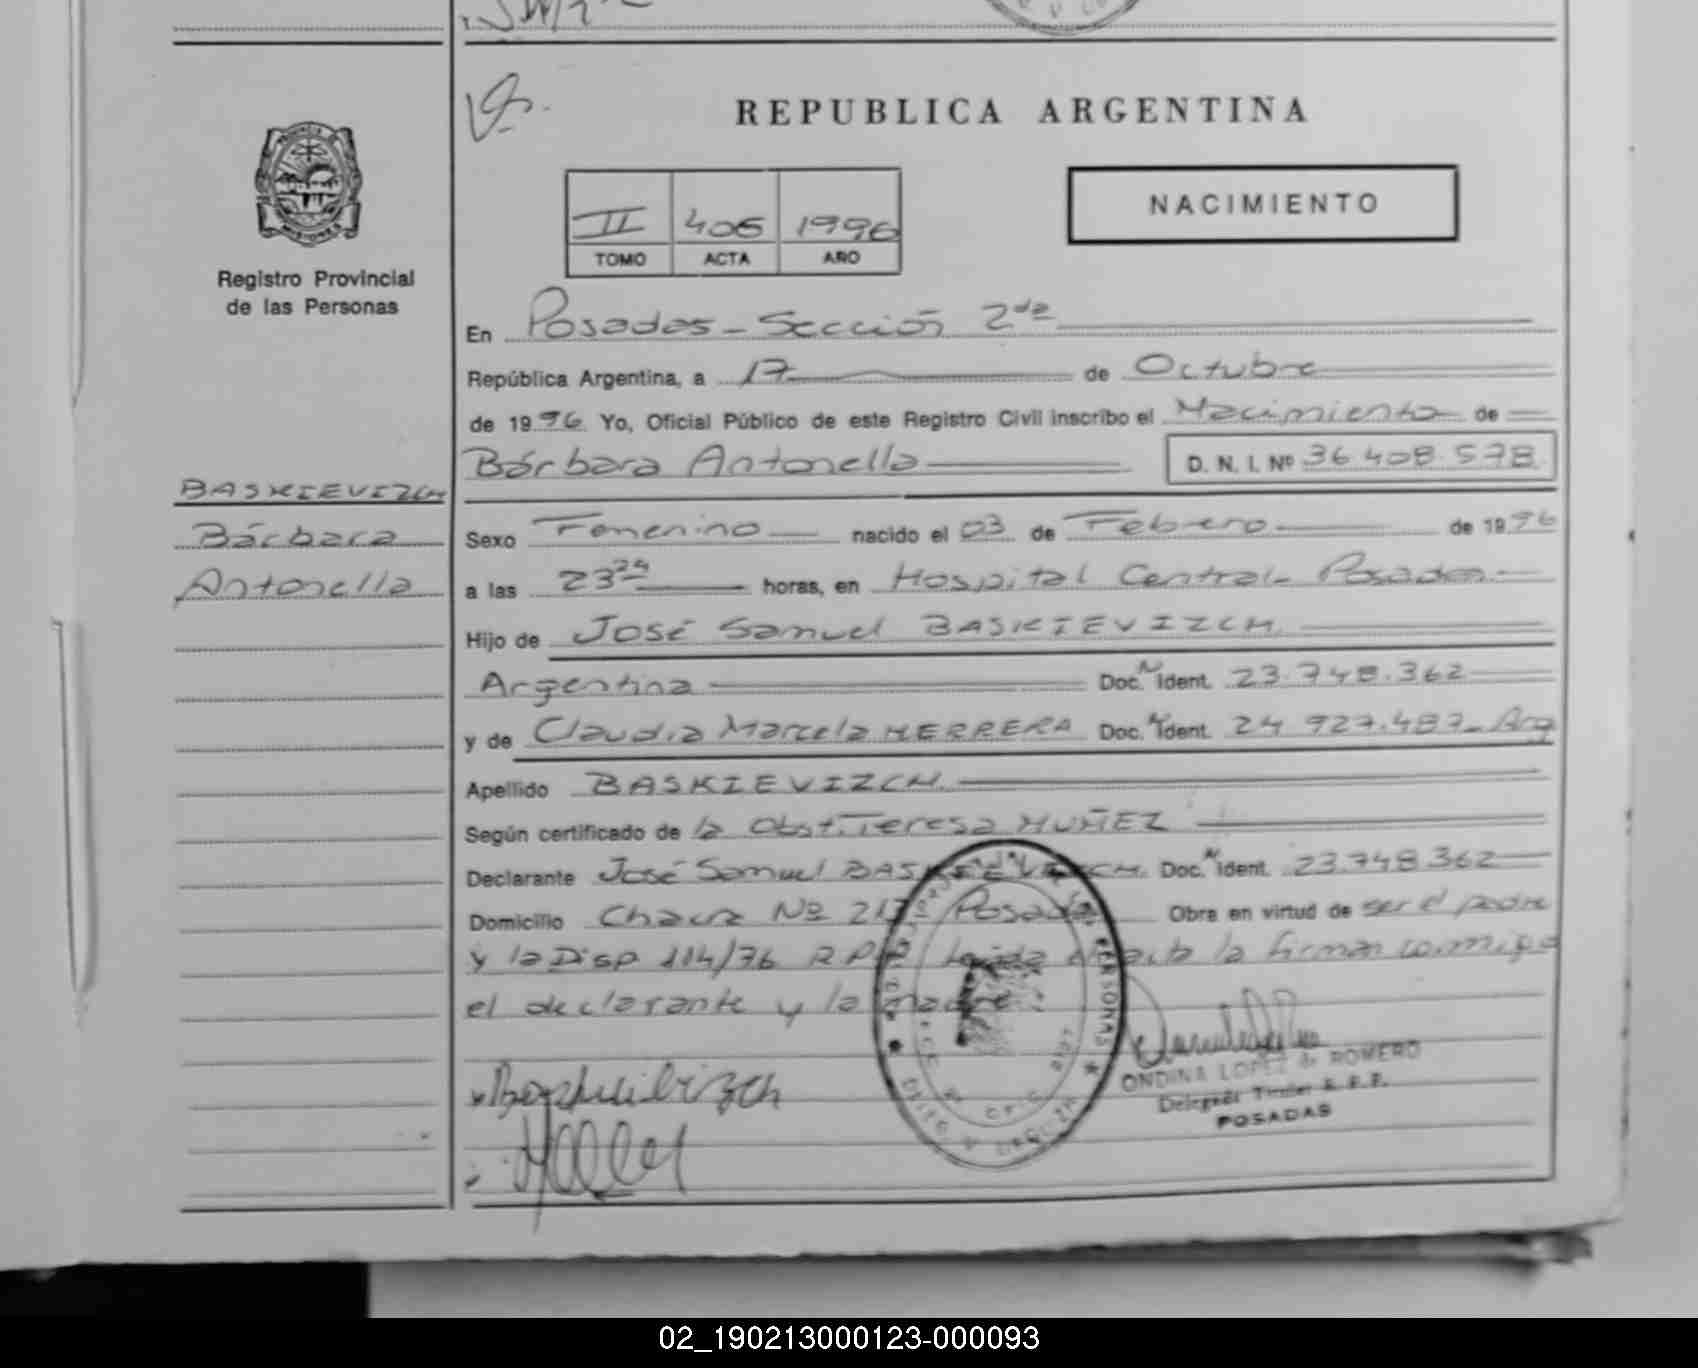 REPUBLICA ARGENTINA
NACIMIENTO
II 406 1996
TOMO ACTA AÑO
PROVINCIA DE MISIONES
Registro Provincial
de las Personas
En Posadas - Sección 2da
República Argentina, a 17 de Octubre
de 1996 Yo, Oficial Público de este Registro Civil inscribo el Nacimiento de
Bárbara Antonella D. N. I. Nº 36.408.578
BASKIEVIZCH
Bárbara
Antonella
Sexo Femenino nacido el 03 de Febrero de 1996
a las 23 24 horas, en Hospital Central - Posadas
Hijo de José Samuel BASKIEVIZCH
Argentina Doc. N Ident. 23.748.362
y de Claudia Marcela HERRERA Doc. N Ident. 24 927.487 - Arg
Apellido BASKIEVIZCH
Según certificado de la Obst. Teresa MUÑEZ
Declarante José Samuel BASKIEVIZCH Doc. N Ident. 23.748.362
Domicilio Chacra Nº Posadas Obra en virtud de ser el padre
y la Disp 114/76 R.P. Leida el acta la firman conmigo
el declarante y la madre
Baskievizch
ONDINA LOPEZ de ROMERO
Delegada Titular R. P. P.
POSADAS
PERSONAS
02_190213000123-000093